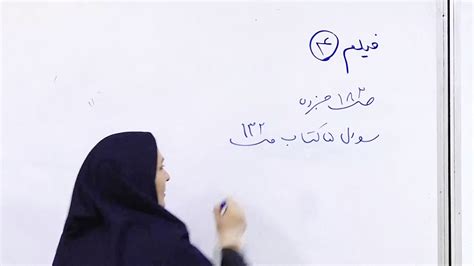 فیلم ۴
ص ۱۸۲ جزوه
سوال ۵ کتاب ص ۱۳۲